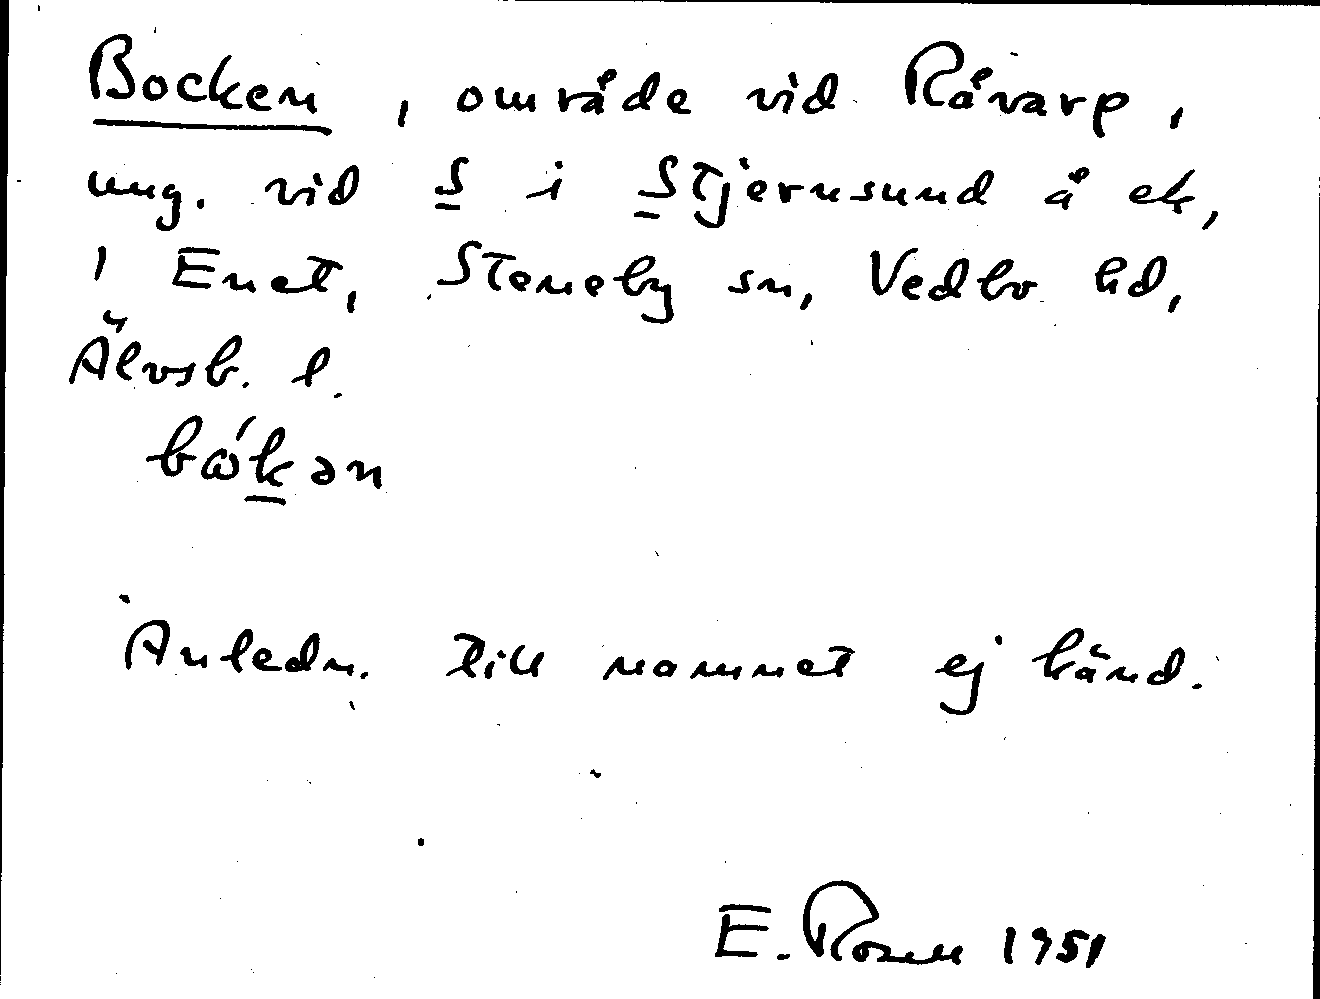 Bocken, område vid Råvarp,
ung. vid S i Stjernsund å ek,
i Enet, Steneby sn, Vedbo hd,
Älvsb. l.
bɷ́kən
Anledn. till namnet ej känd.
E. Rosen 1951